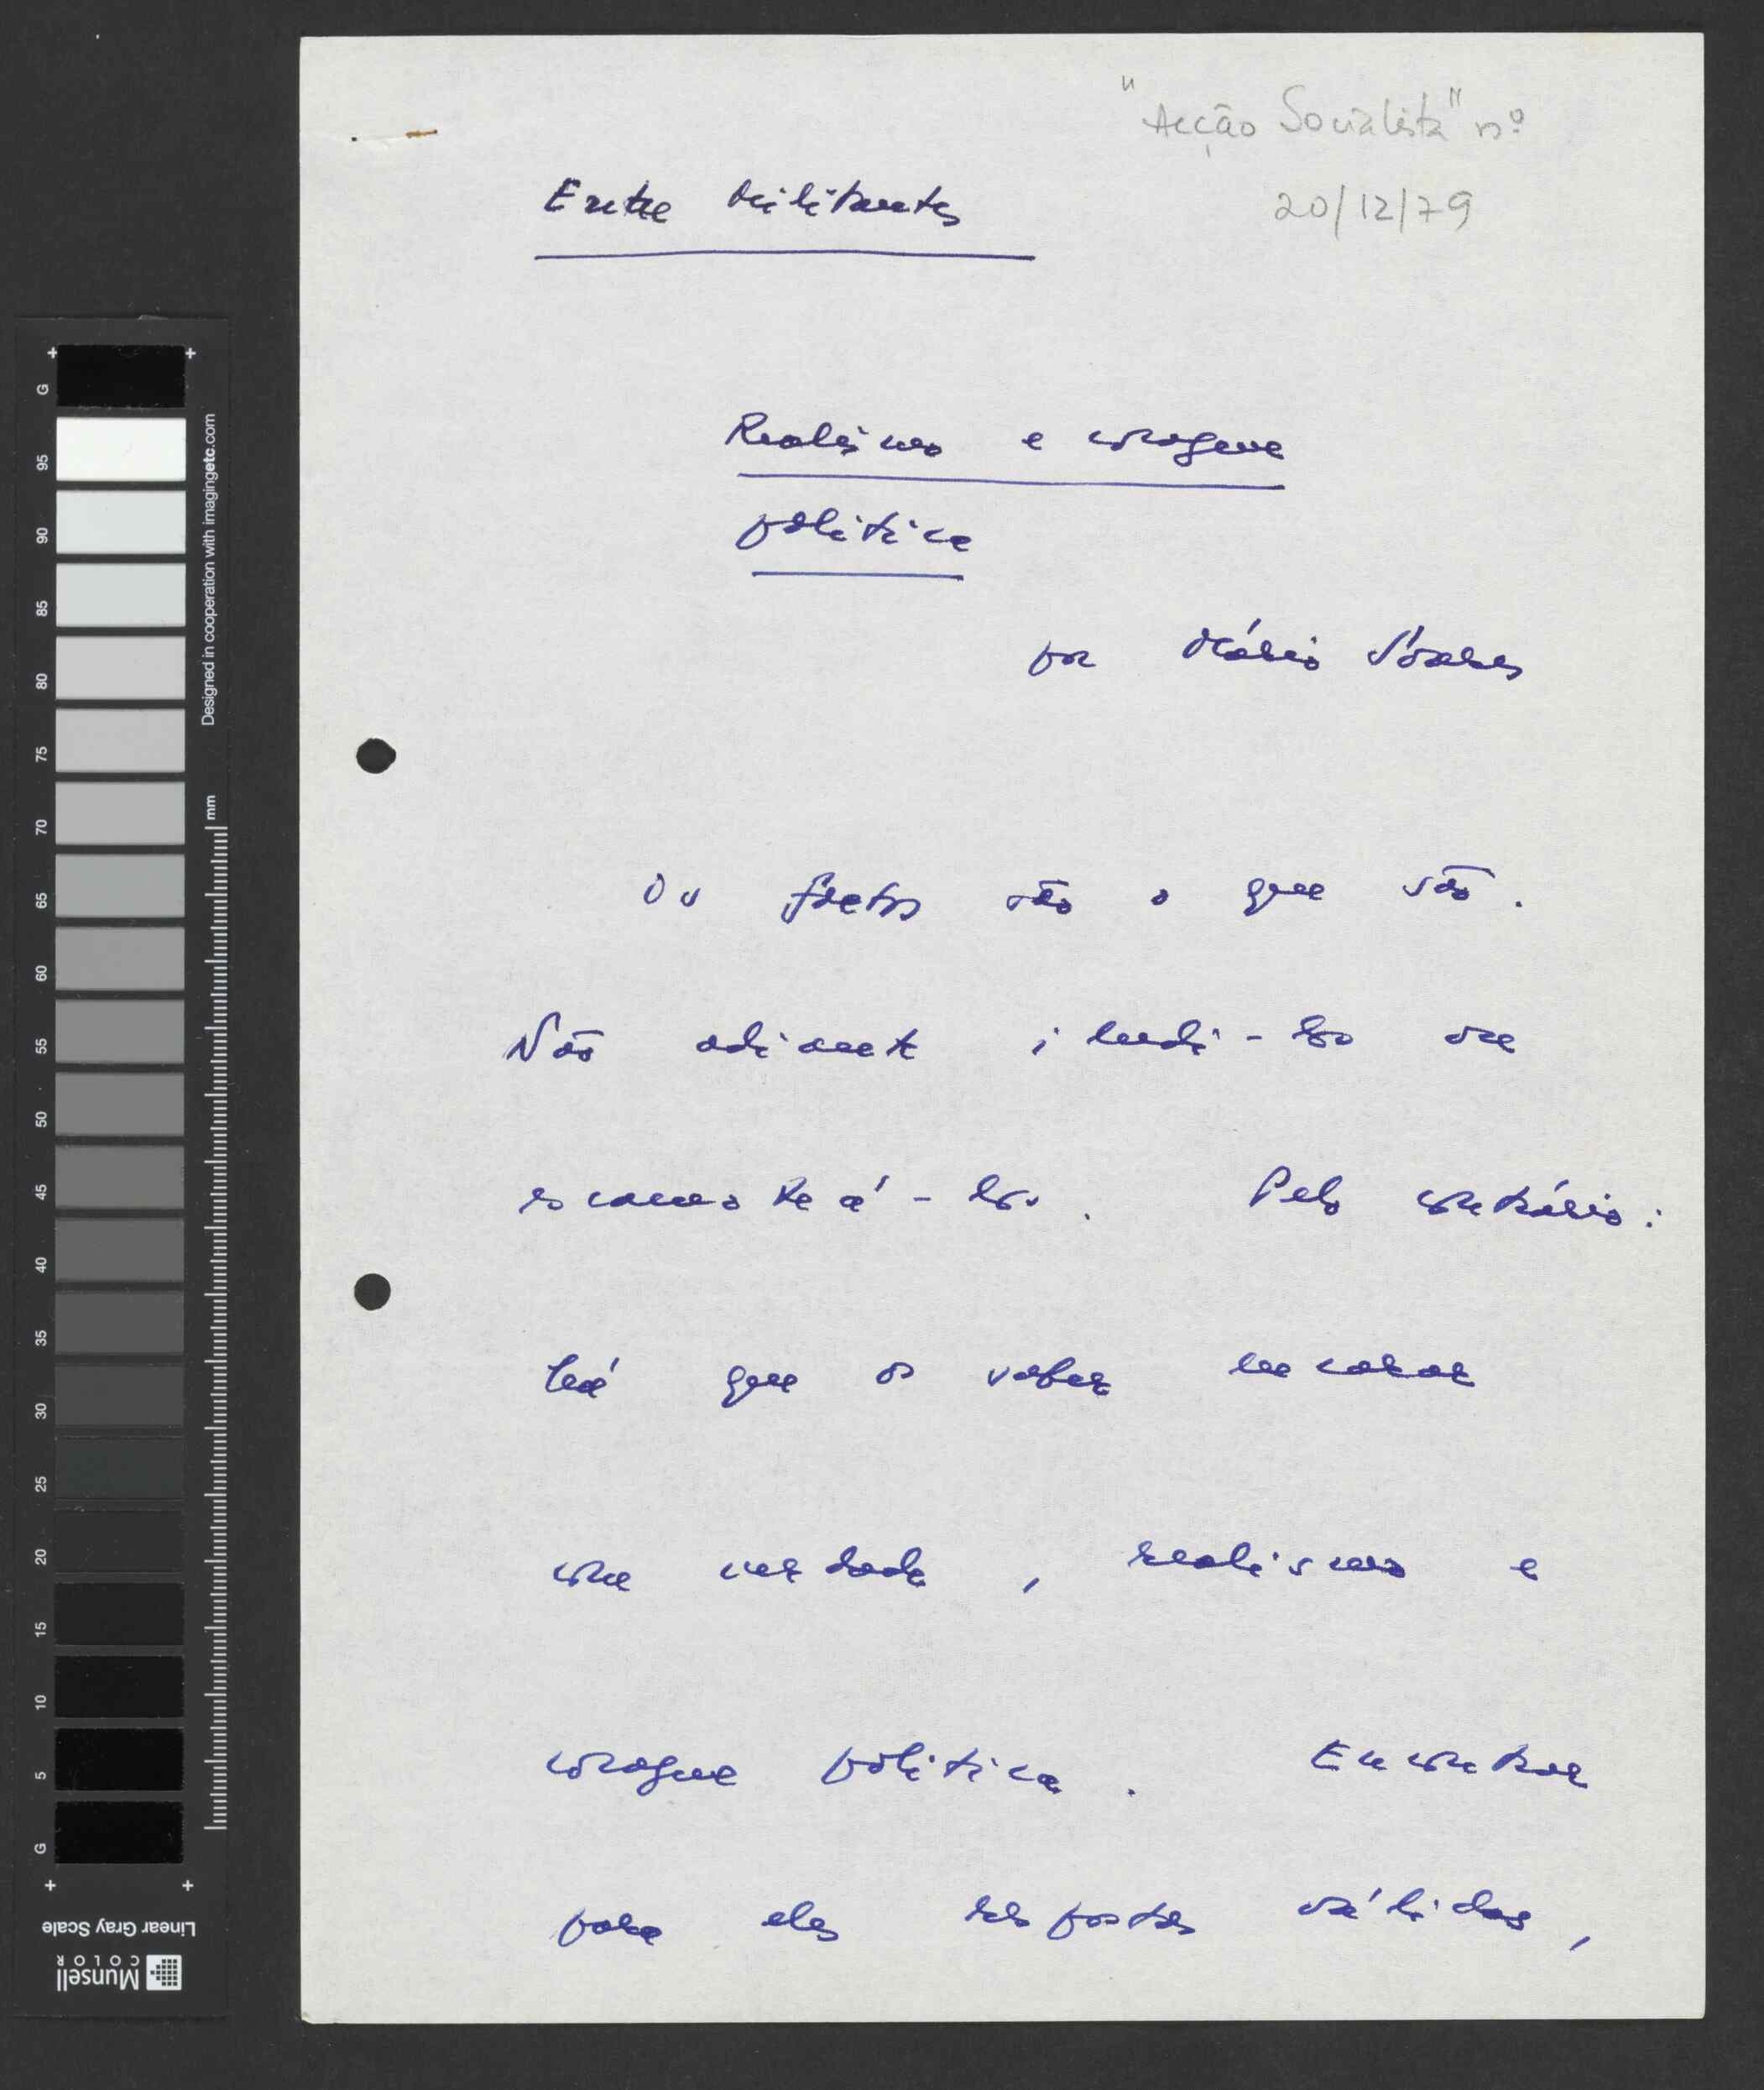 "Acção Socialista" nº
20/12/79
Entre Militantes
Realismo e coragem
política
por Mário Soares
Os factos são o que são.
Não adianta iludi-los ou
escamoteá-los. Pelo contrário:
há que os saber encarar
com verdade, realismo e
coragem política. Encontrar
para eles respostas válidas,
G
95
90
85
80
75
70
65
60
55
50
45
40
35
30
25
20
15
10
5
G
Designed in cooperation with imagingetc.com
mm
Linear Gray Scale
Munsell
COLOR